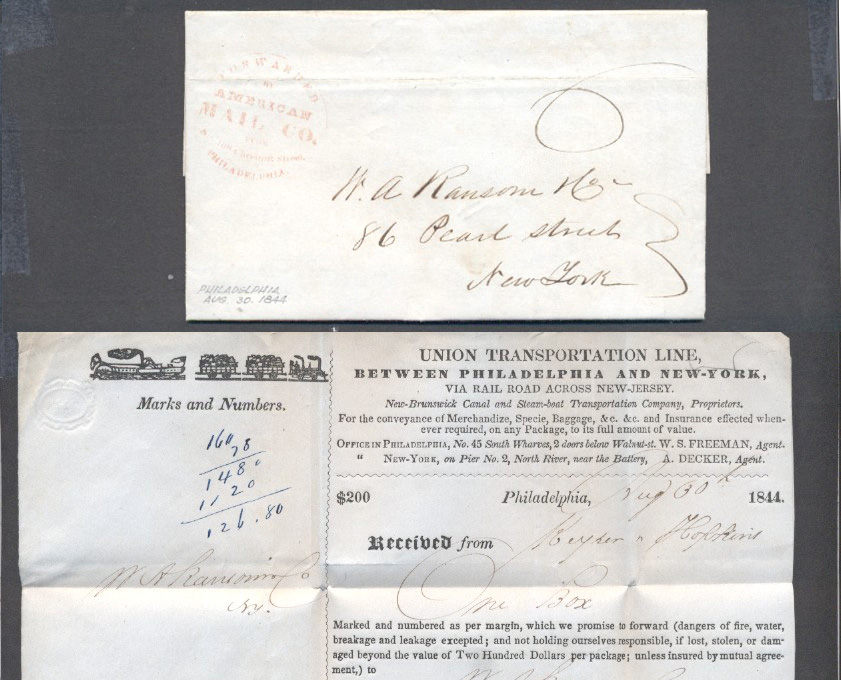 FORWARDED
BY
AMERICAN
MAIL CO.
FROM
Chesnut Street.
PHILADELPHIA.
W. A Ransom & Co
86 Pearl street
New York
PHILADELPHIA
AUG. 30. 1844
UNION TRANSPORTATION LINE,
BETWEEN PHILADELPHIA AND NEW-YORK,
VIA RAIL ROAD ACROSS NEW-JERSEY.
New-Brunswick Canal and Steam-boat Transportation Company, Proprietors.
For the conveyance of Merchandize, Specie, Baggage, &c. &c. and Insurance effected when-
ever required, on any Package, to its full amount of value.
OFFICE IN PHILADELPHIA, No. 45 South Wharves, 2 doors below Walnut-st. W. S. FREEMAN, Agent.
" NEW-YORK, on Pier No. 2, North River, near the Battery, A. DECKER, Agent.
Marks and Numbers.
160
78
1480
1120
126.80
W A Ransom & Co
Ny.
$200 Philadelphia, Aug 30th 1844.
Received from Keyser & Hopkins
One Box
Marked and numbered as per margin, which we promise to forward (dangers of fire, water,
breakage and leakage excepted; and not holding ourselves responsible, if lost, stolen, or dam-
aged beyond the value of Two Hundred Dollars per package; unless insured by mutual agree-
ment,) to